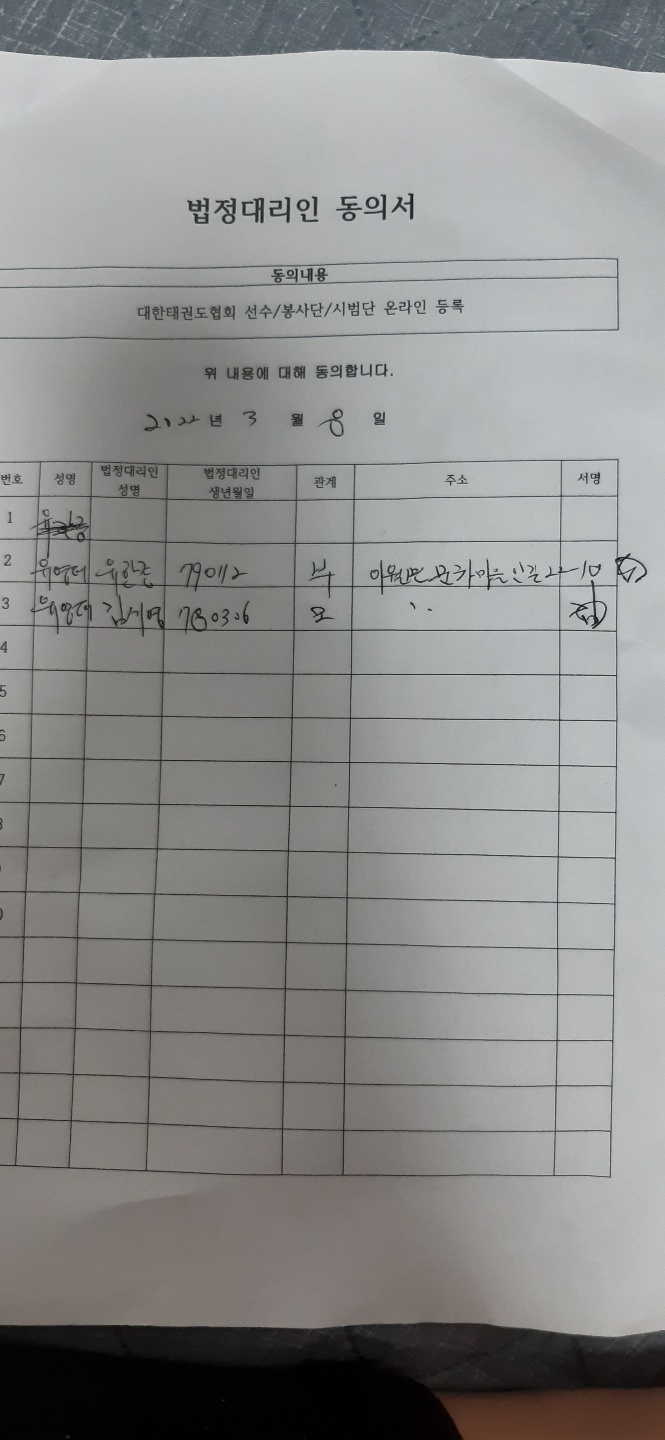 법정대리인 동의서
동의내용
대한태권도협회 선수/봉사단/시범단 온라인 등록
위 내용에 대해 동의합니다.
2022 년 3 월 8 일
번호 성명 법정대리인 성명 법정대리인 생년월일 관계 주소 서명
1
2 790112 부 22-10
3 김세영 780306 모 〃
4
5
6
7